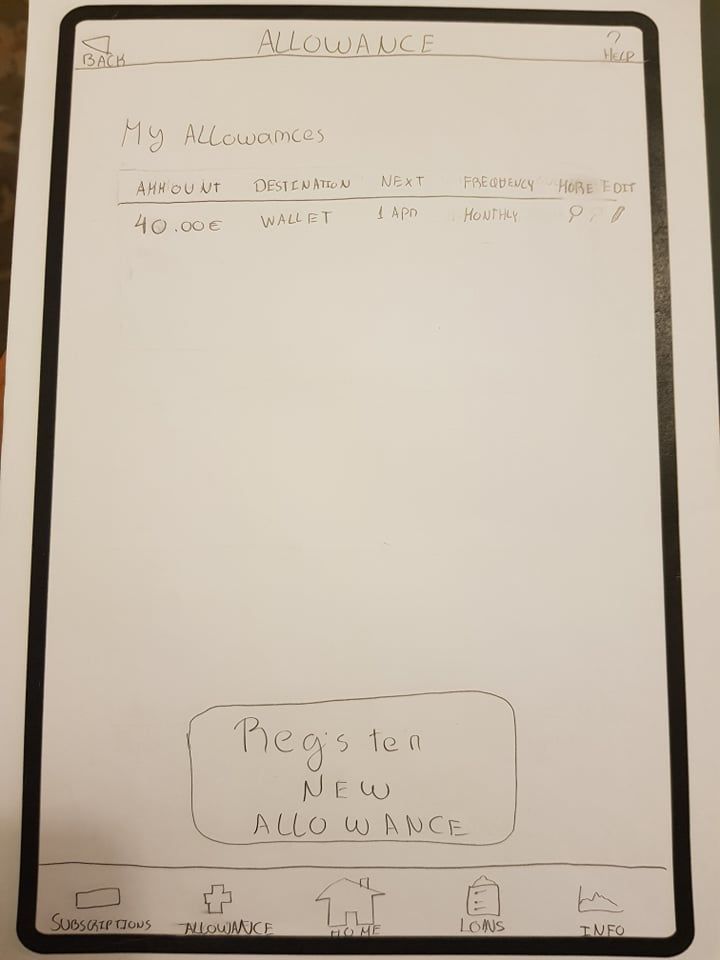 BACK
ALLOWANCE
?
HELP
My Allowances
AMMOUNT DESTINATION NEXT FREQUENCY MORE EDIT
40.00€ WALLET 1 APR MONTHLY
Register
NEW
ALLOWANCE
SUBSCRIPTIONS ALLOWANCE HOME LOANS INFO